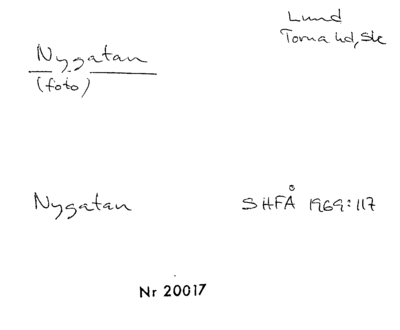 Lund
Torna hd, Sk
Nygatan
(foto)
Nygatan SHFÅ 1969:117
Nr 20017